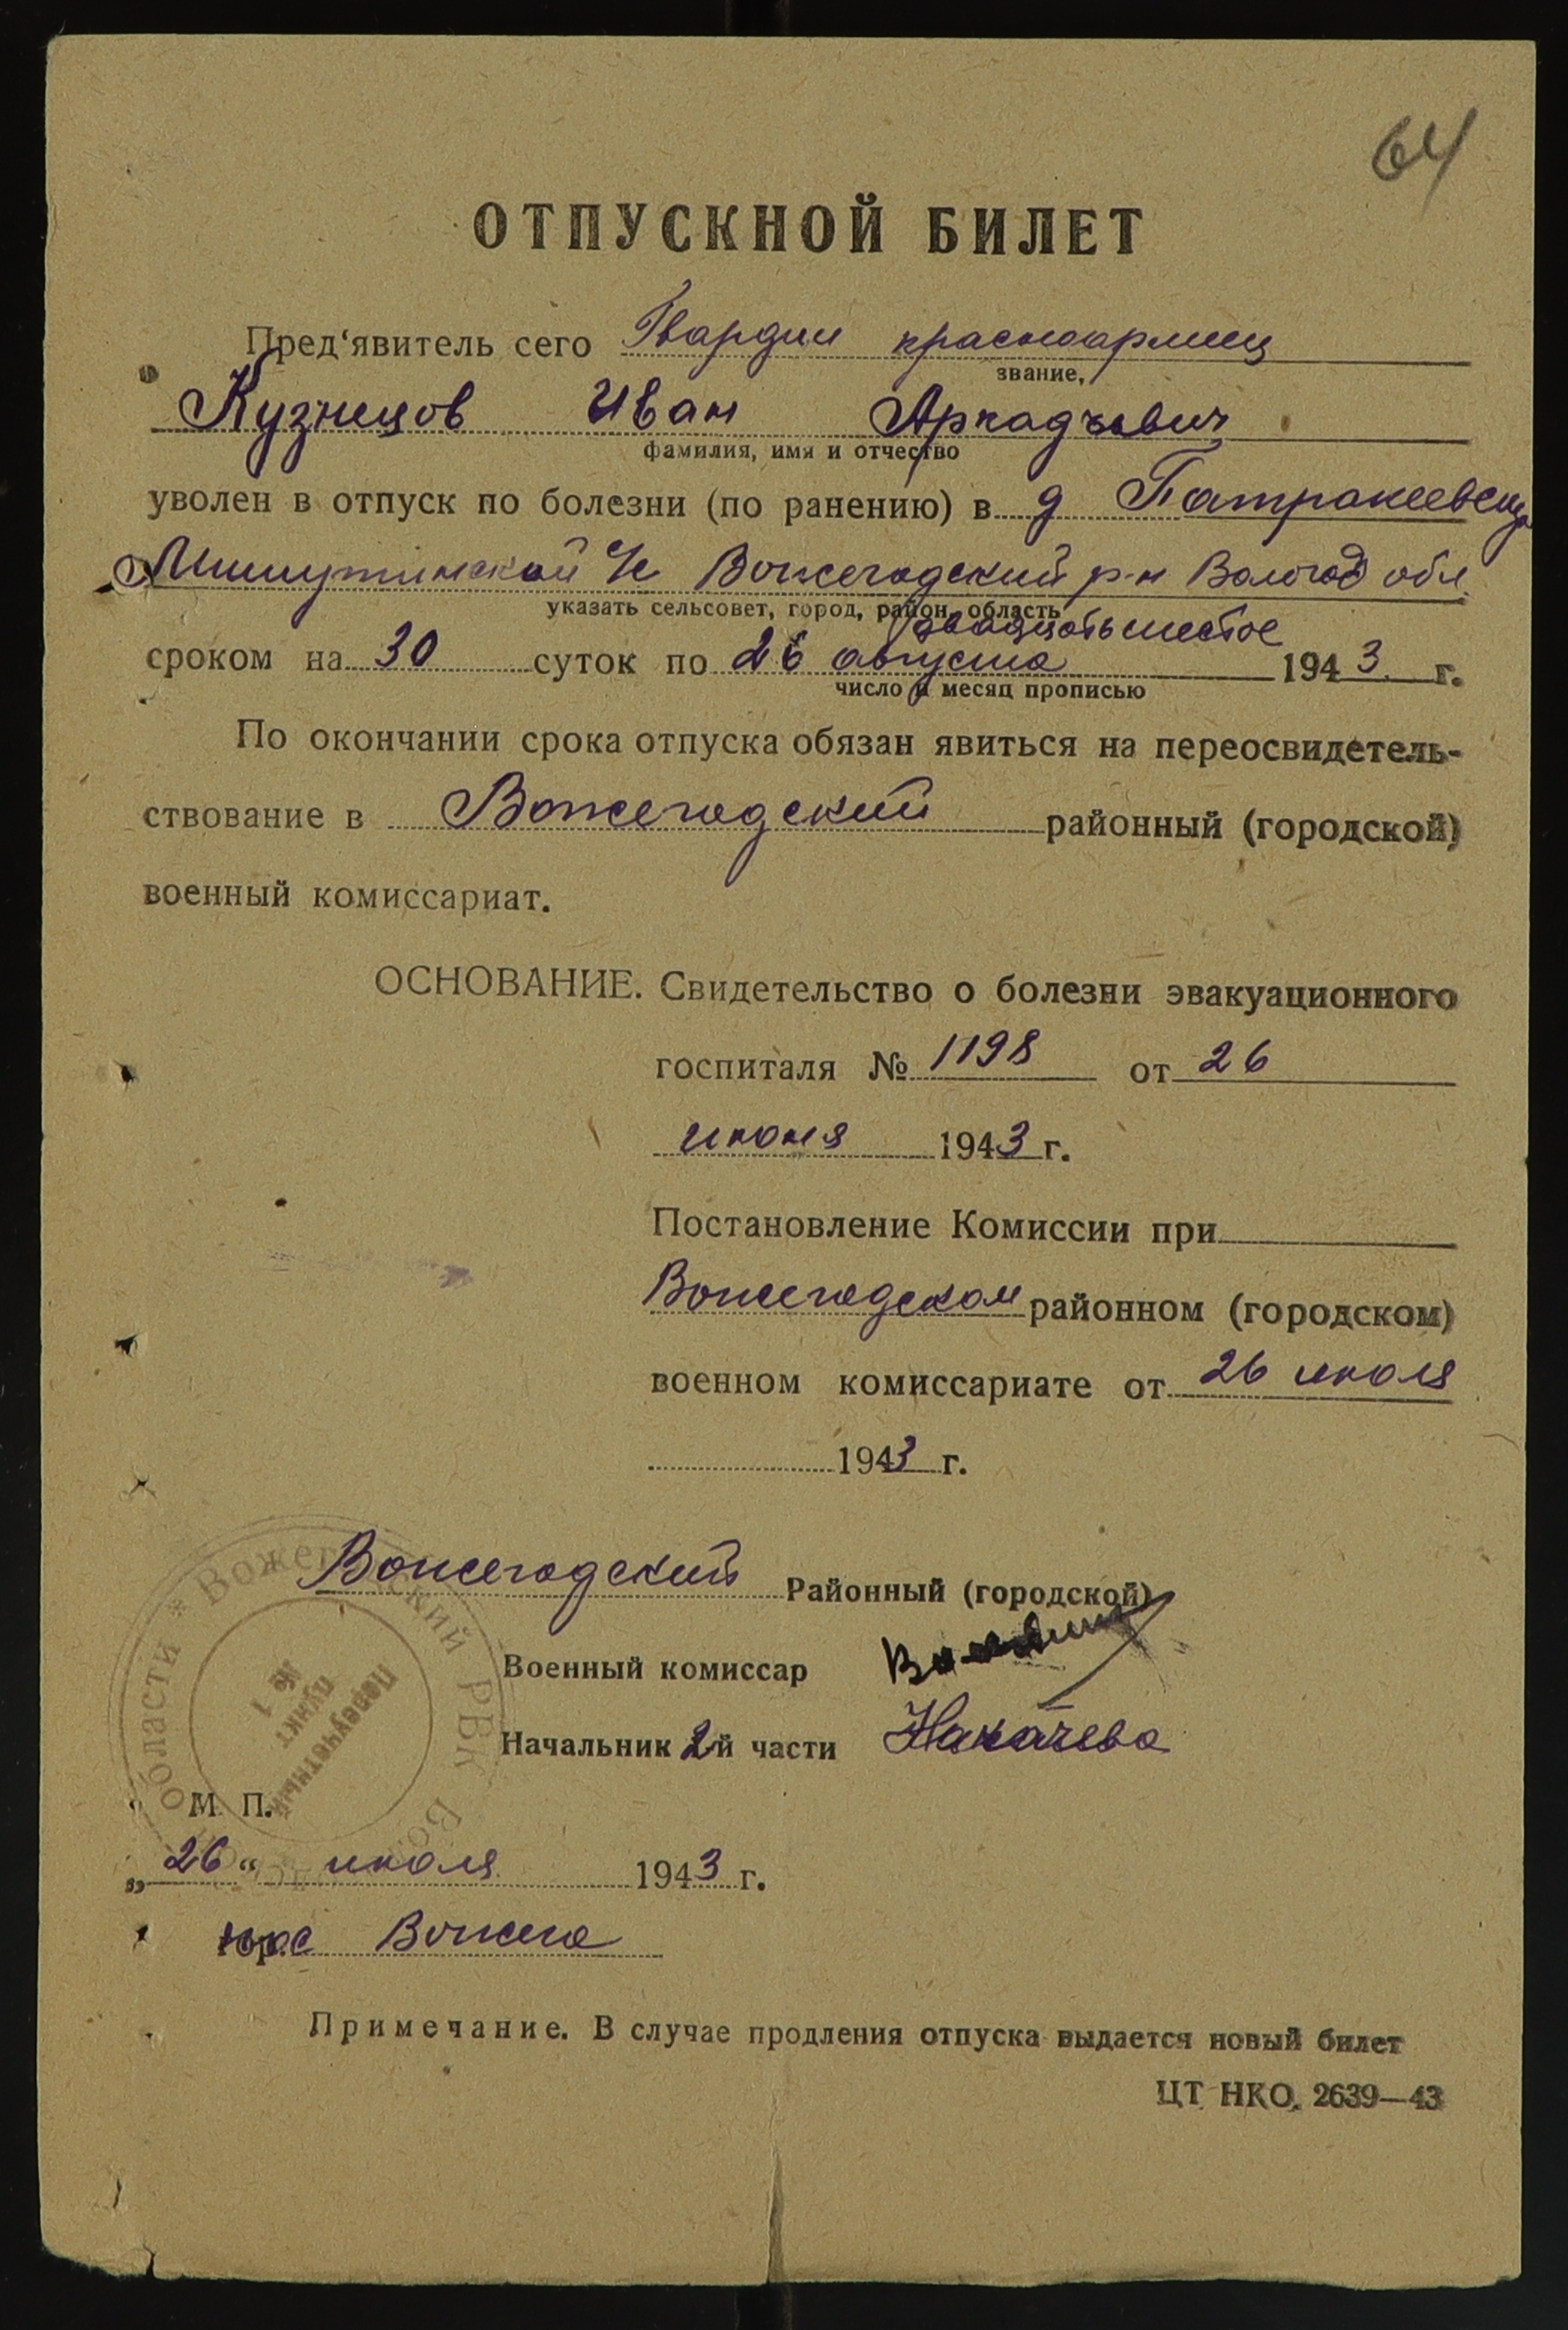 64
ОТПУСКНОЙ БИЛЕТ
Пред‘явитель сего Гвардии красноармеец
звание,
Кузнецов Иван Аркадьевич
фамилия, имя и отчество
уволен в отпуск по болезни (по ранению) в д Патракеевская
Мишутинской с/с Вожегодский р-н Вологод обл.
указать сельсовет, город, район, область
двадцать шестое
сроком на 30 суток по 26 августа 1943 г.
число и месяц прописью
По окончании срока отпуска обязан явиться на переосвидетель-
ствование в Вожегодский районный (городской)
военный комиссариат.
ОСНОВАНИЕ. Свидетельство о болезни эвакуационного
госпиталя № 1198 от 26
июня 1943 г.
Постановление Комиссии при
Вожегодском районном (городском)
военном комиссариате от 26 июля
1943 г.
Вожегодский Районный (городской)
Военный комиссар
Начальник 2й части
М. П.
Вожегодский РВК Вологодской области *
Переучетный
пункт
№ 1
„26“ июля 1943 г.
Вожега
Примечание. В случае продления отпуска выдается новый билет
ЦТ НКО. 2639—43